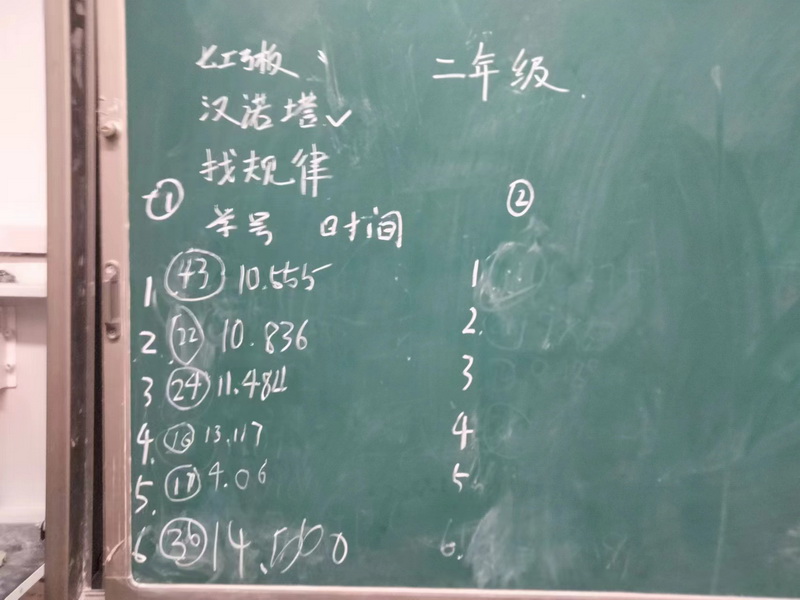 七巧板
二年级.
汉诺塔✓
找规律
①
②
学号 时间
1. 43 10.555
2. 22 10.836
3 24 11.484
4. 16 13.117
5. 17 4.06
6 36 14.
1
2.
3
4
5.
6.